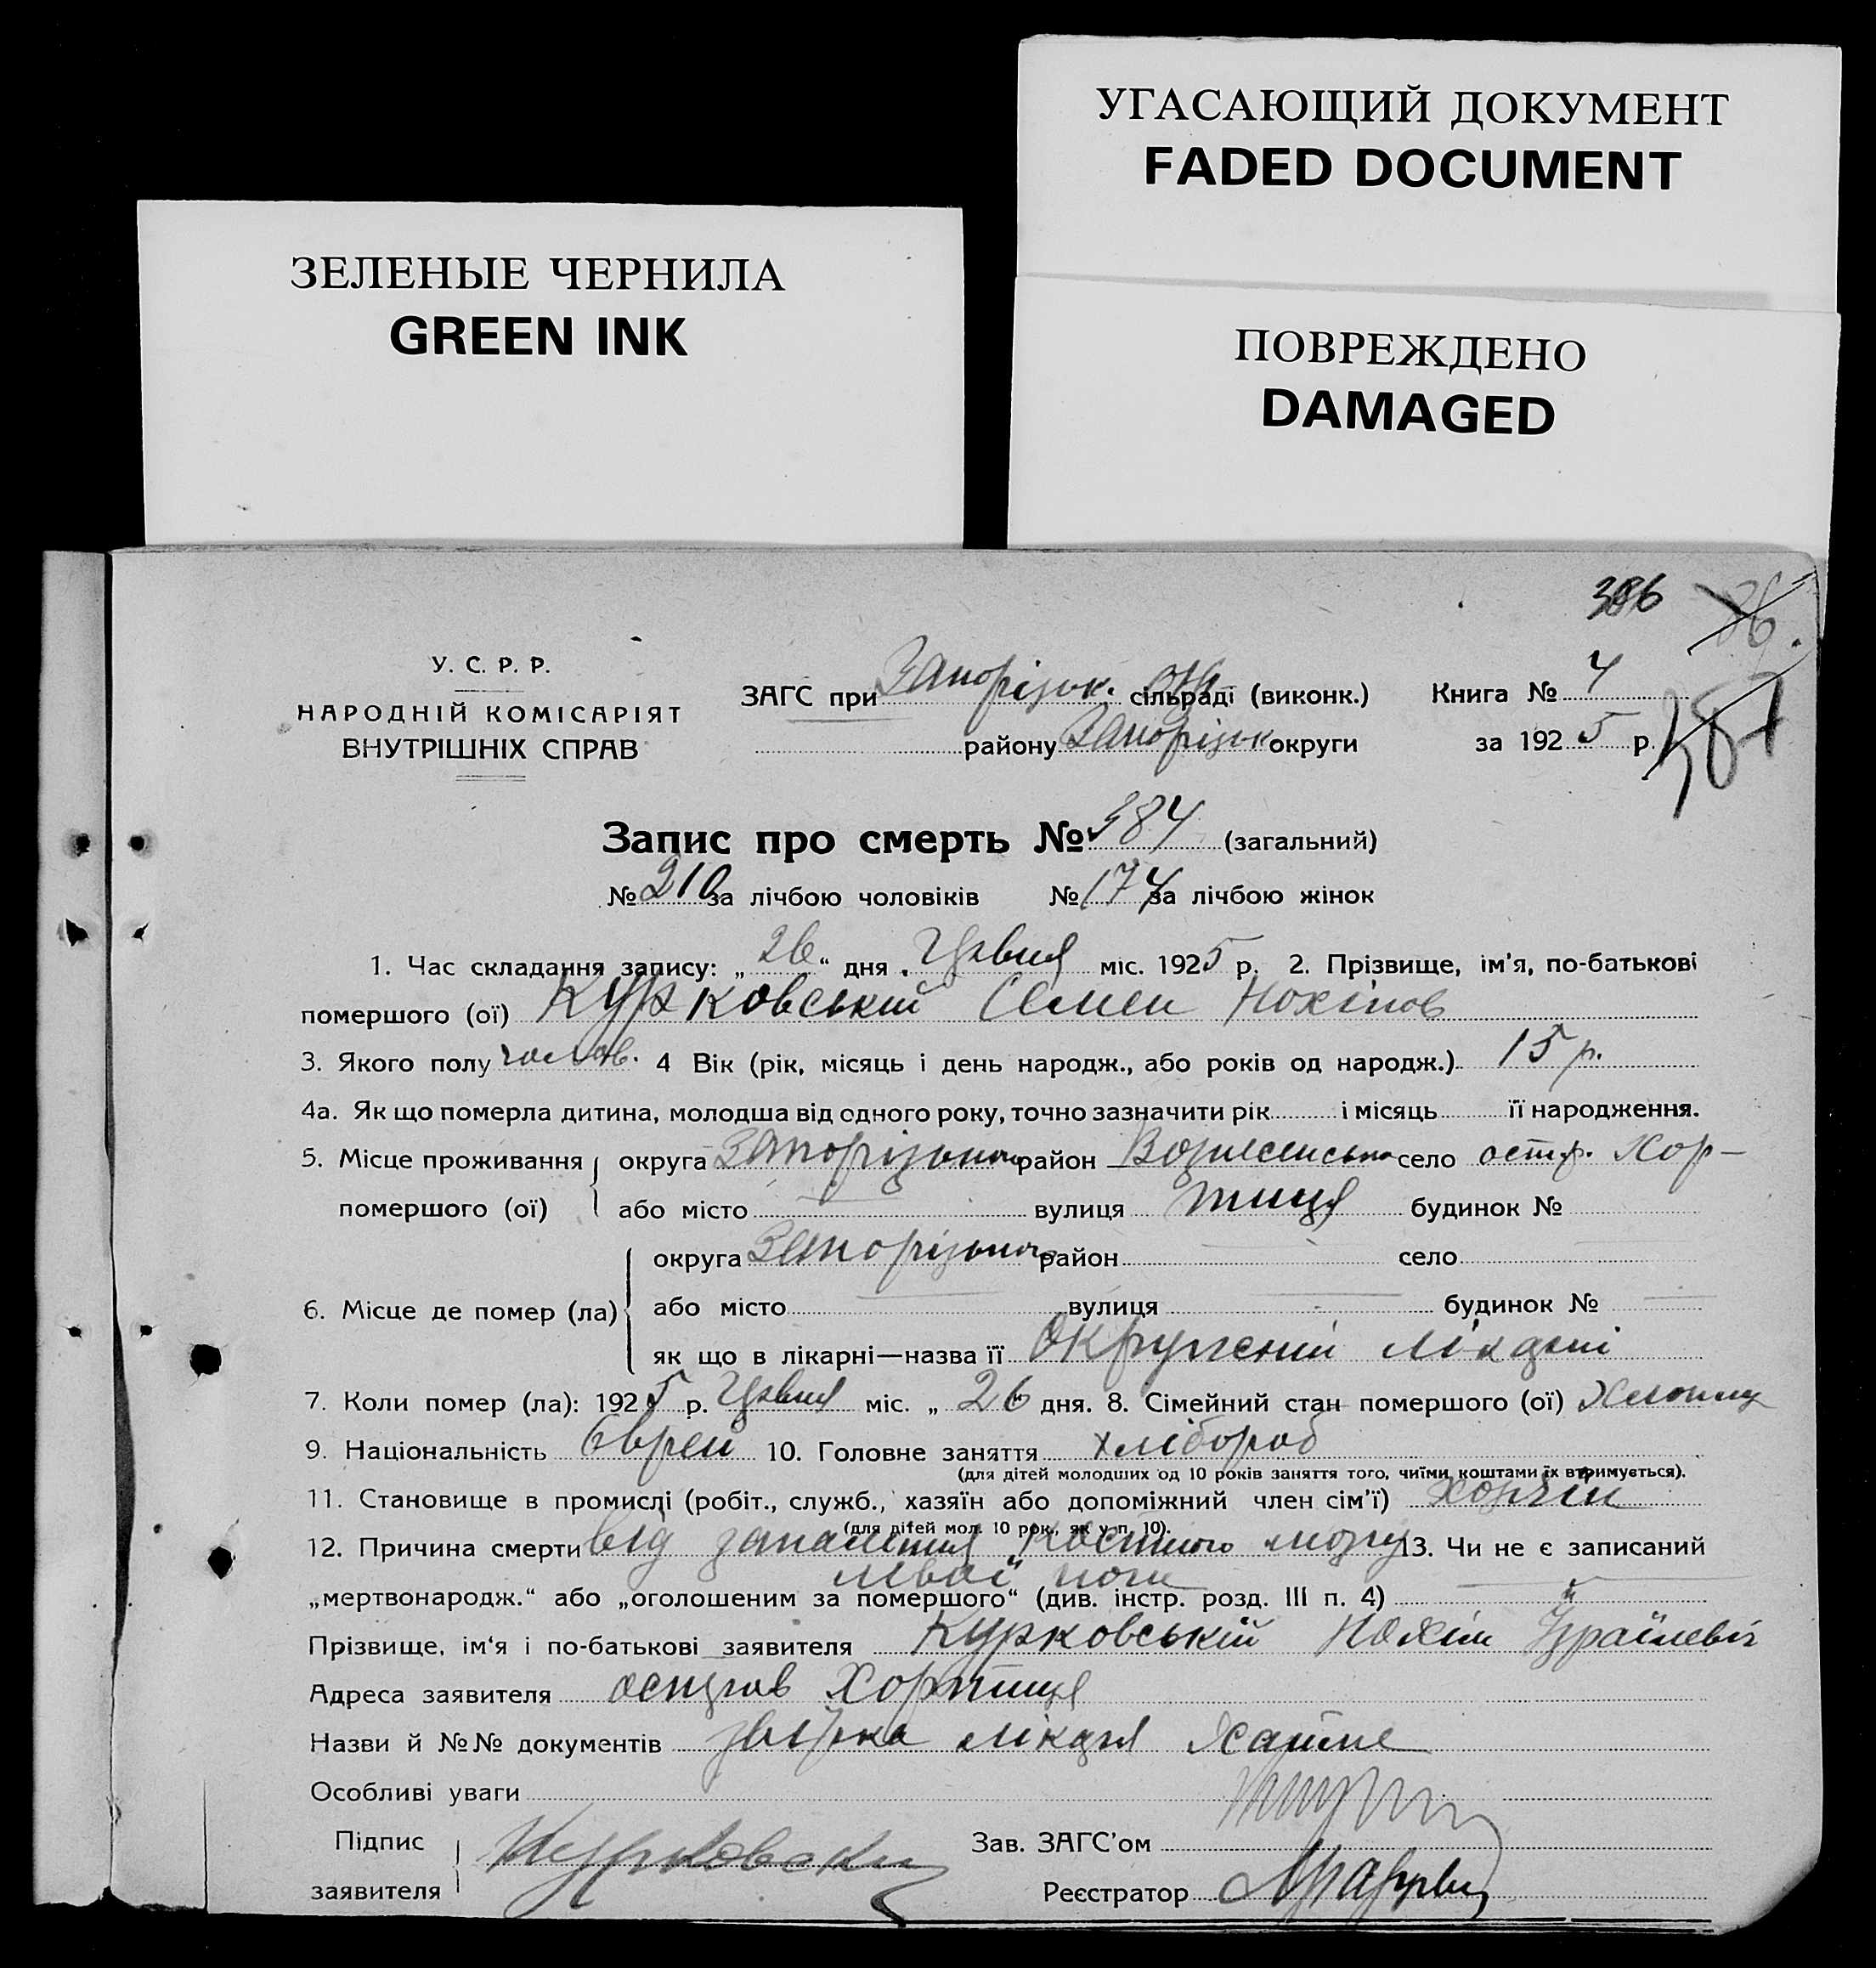 УГАСАЮЩИЙ ДОКУМЕНТ
FADED DOCUMENT
ЗЕЛЕНЫЕ ЧЕРНИЛА
GREEN INK
ПОВРЕЖДЕНО
DAMAGED
386
У. С. Р. Р.
НАРОДНІЙ КОМІСАРІЯТ
ВНУТРІШНІХ СПРАВ
ЗАГС при Запорізьк. окр сільраді (виконк.) Книга № 4
району Запорізьк округи за 1925 р. 387
Запис про смерть № 384 (загальний)
№ 210 за лічбою чоловіків № 174 за лічбою жінок
1. Час складання запису: „26“ дня міс. 1925 р. 2. Прізвище, ім'я, по-батькові
помершого (ої) Курковський Семен Нохімов
3. Якого полу чолов. 4 Вік (рік, місяць і день народж., або років од народж.) 15 р.
4а. Як що померла дитина, молодша від одного року, точно зазначити рік і місяць її народження.
5. Місце проживання округа Запорізька район Вознесенська село остр. Хор-
помершого (ої) або місто вулиця тиця будинок №
округа Запорізька район село
6. Місце де помер (ла) або місто вулиця будинок №
як що в лікарні—назва її Окружений лікарні
7. Коли помер (ла): 1925 р. міс. „ 26 дня. 8. Сімейний стан помершого (ої)
9. Національність Єврей 10. Головне заняття хлібороб
(для дітей молодших од 10 років заняття того, чиїми коштами їх втримується).
11. Становище в промислі (робіт., служб., хазяїн або допоміжний член сім'ї)
(для дітей мол. 10 рок., як у п. 10).
12. Причина смерти від запалення костного мозгу 13. Чи не є записаний
лівої ноги
„мертвонародж.“ або „оголошеним за помершого“ (див. інстр. розд. III п. 4)
Прізвище, ім'я і по-батькові заявителя Курковський Нохім Ізраілевіч
Адреса заявителя острав Хортиця
Назви й №№ документів
Особливі уваги
Підпис
заявителя Курковски
Зав. ЗАГС'ом
Реєстратор